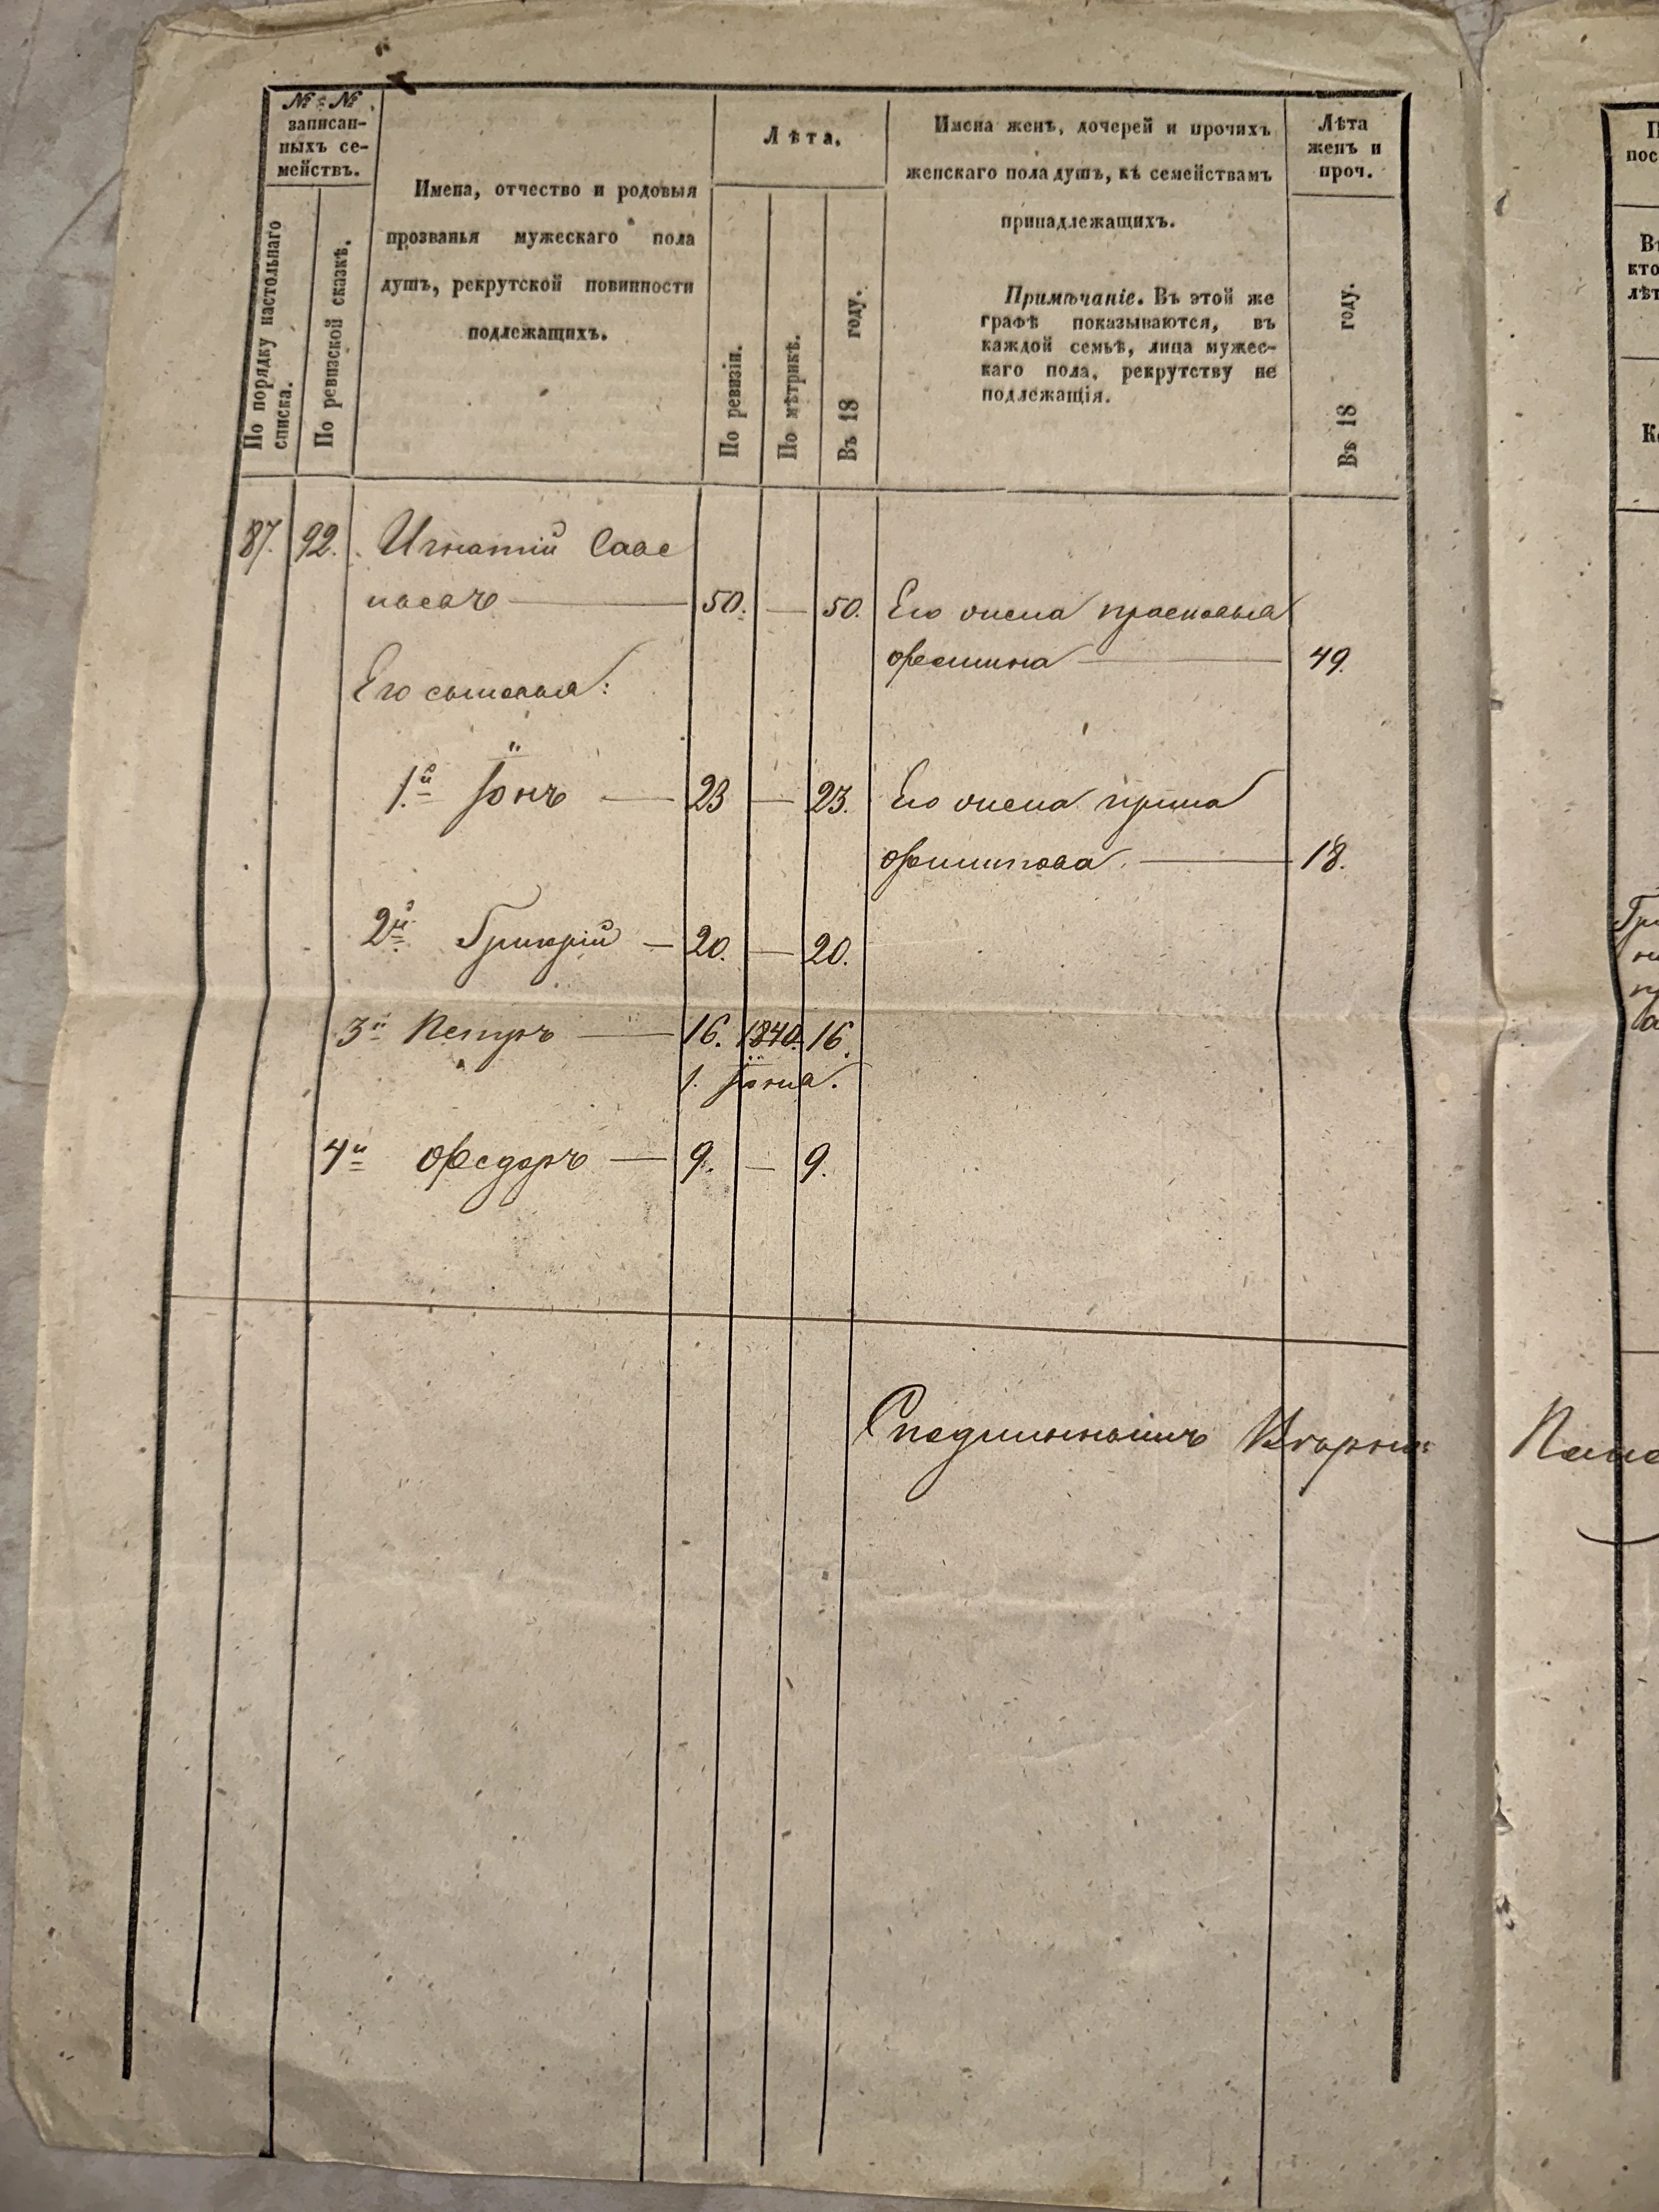 № № записан-
ныхъ се-
мействъ.
По порядку настольнаго
списка.
По ревизской сказкѣ.
Имена, отчество и родовыя
прозванья мужескаго пола
душъ, рекрутской повинности
подлежащихъ.
Лѣта.
По ревизіи.
По мѣтрикѣ.
Въ 18 году.
Имена женъ, дочерей и прочихъ
женскаго пола душъ, къ семействамъ
принадлежащихъ.
Примѣчаніе. Въ этой же
графѣ показываются, въ
каждой семьѣ, лица мужес-
каго пола, рекрутству не
подлежащія.
Лѣта
женъ и
проч.
Въ 18 году.
87. 92. Игнатій
50. — 50. Его жена Прасковья
49.
Его сыновья:
1й Іонъ — 23 — 23. Его жена Ирина
Филипова — 18.
2й Григорій — 20. — 20.
3й Петръ — 16. 1840. 16.
1. Іюня.
4й Федоръ — 9. — 9.
Съ подлиннымъ Вѣрно: